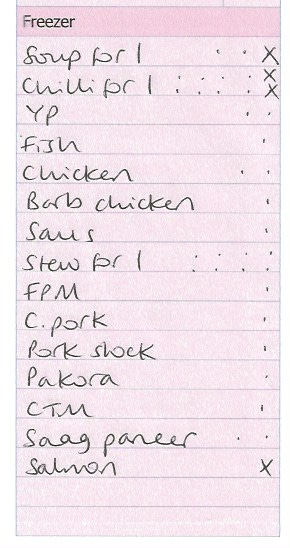 Freezer
Soup for 1 X
Chilli for 1 X X
YP
Fish
Chicken
Barb chicken
Saus
Stew for 1
FPM
C. pork
Pork stock
Pakora
CTM
Saag paneer
Salmon X